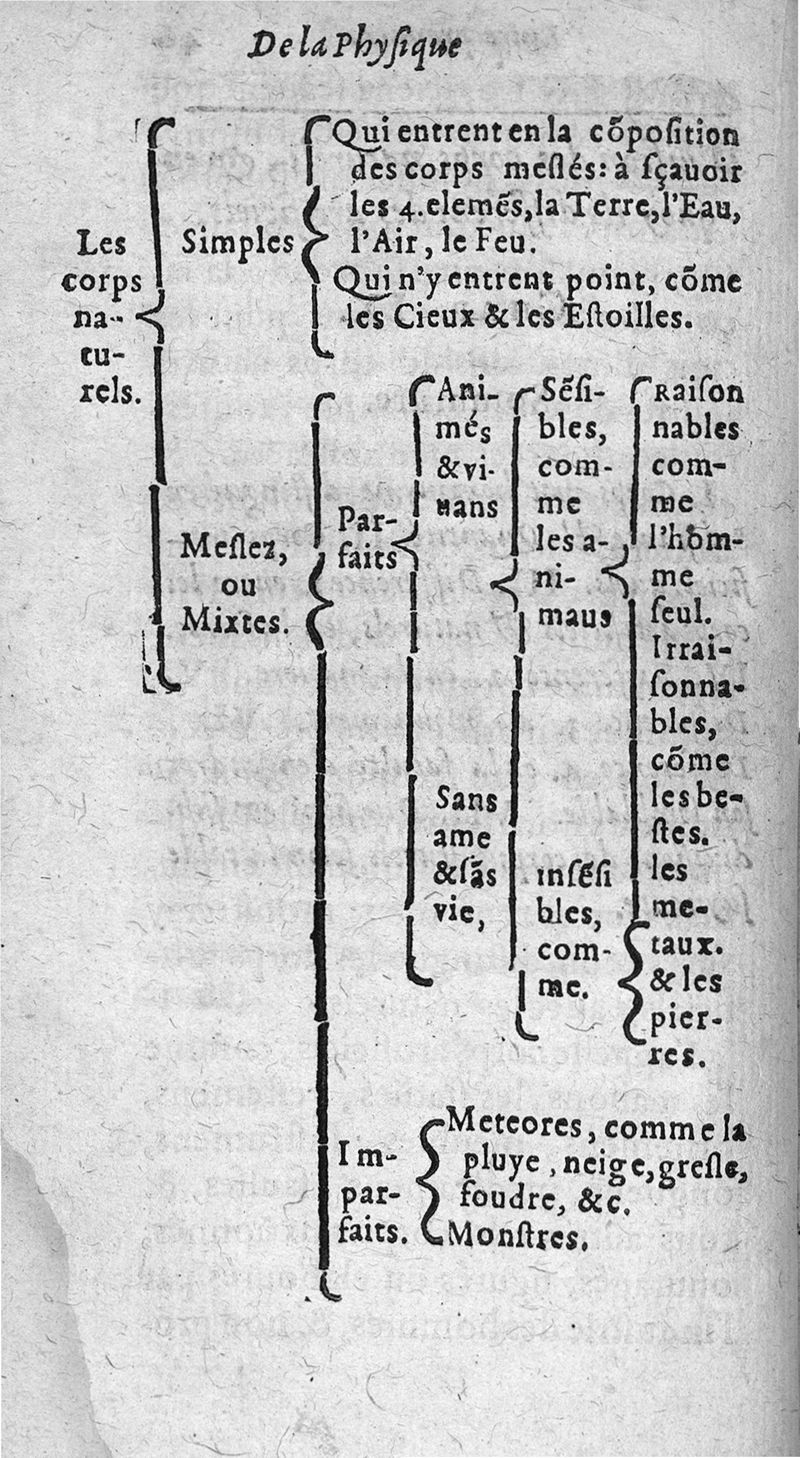 De la Phyſique
Les
corps
na-
tu-
rels.
Simples
Qui entrent en la cõpoſition
des corps meſlés: à ſçauoir
les 4. elemẽs, la Terre, l'Eau,
l'Air, le Feu.
Qui n'y entrent point, cõme
les Cieux & les Eſtoilles.
Meſlez,
ou
Mixtes.
Par-
faits
Ani-
més
& vi-
uans
Sẽſi-
bles,
com-
me
les a-
ni-
maus
Raiſon
nables
com-
me
l'hom-
me
ſeul.
Irrai-
ſonna-
bles,
cõme
les be-
ſtes.
Sans
ame
& ſãs
vie,
inſẽſi
bles,
com-
me.
les
me-
taux.
& les
pier-
res.
Im-
par-
faits.
Meteores, comme la
pluye, neige, greſle,
foudre, &c.
Monſtres.